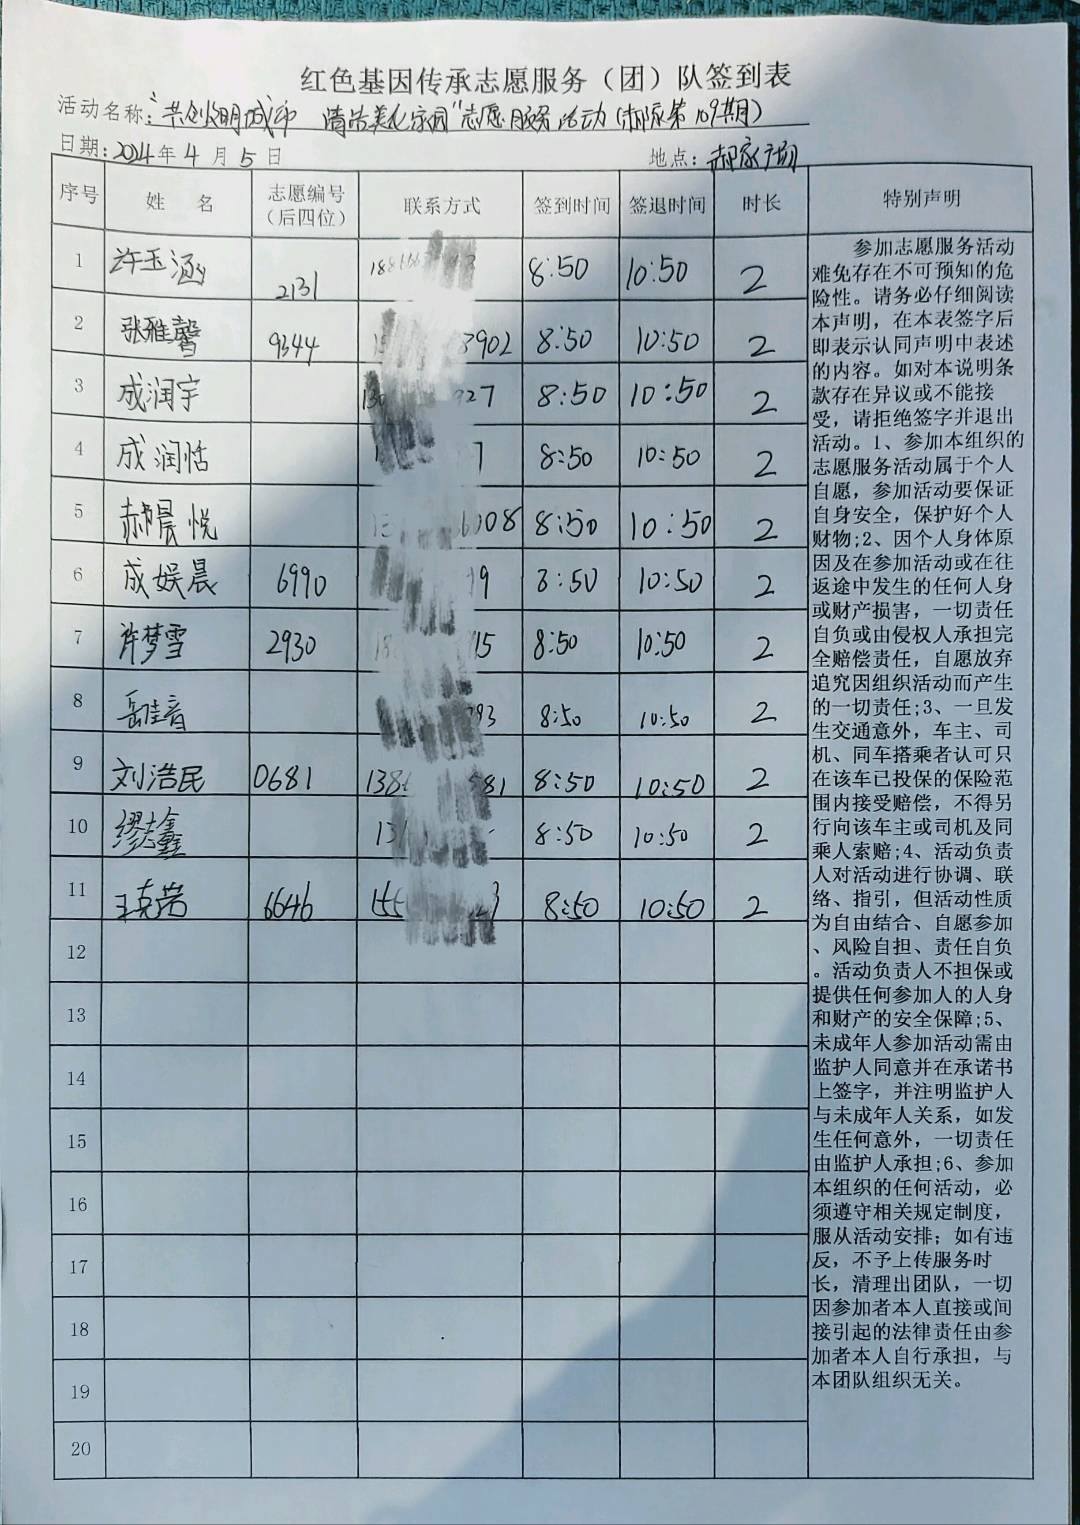 红色基因传承志愿服务（团）队签到表
活动名称:“共创文明城市 清洁美化家园”志愿服务活动(郝家第109期)
日期:2024年4月5日 地点:郝家广场
序号 姓 名 志愿编号（后四位） 联系方式 签到时间 签退时间 时长 特别声明
1 许玉涵 2131 8:50 10:50 2
2 张雅馨 9344 3902 8:50 10:50 2
3 成润宇 130 927 8:50 10:50 2
4 成润恬 7 8:50 10:50 2
5 郝晨悦 008 8:50 10:50 2
6 成娱晨 6990 9 8:50 10:50 2
7 许梦雪 2930 15 8:50 10:50 2
8 岳佳音 93 8:50 10:50 2
9 刘浩民 0681 138 81 8:50 10:50 2
10 缪志鑫 13 8:50 10:50 2
11 王克荣 6646 155 3 8:50 10:50 2
12
13
14
15
16
17
18
19
20
参加志愿服务活动
难免存在不可预知的危
险性。请务必仔细阅读
本声明，在本表签字后
即表示认同声明中表述
的内容。如对本说明条
款存在异议或不能接
受，请拒绝签字并退出
活动。1、参加本组织的
志愿服务活动属于个人
自愿，参加活动要保证
自身安全，保护好个人
财物;2、因个人身体原
因及在参加活动或在往
返途中发生的任何人身
或财产损害，一切责任
自负或由侵权人承担完
全赔偿责任，自愿放弃
追究因组织活动而产生
的一切责任;3、一旦发
生交通意外，车主、司
机、同车搭乘者认可只
在该车已投保的保险范
围内接受赔偿，不得另
行向该车主或司机及同
乘人索赔;4、活动负责
人对活动进行协调、联
络、指引，但活动性质
为自由结合、自愿参加
、风险自担、责任自负
。活动负责人不担保或
提供任何参加人的人身
和财产的安全保障;5、
未成年人参加活动需由
监护人同意并在承诺书
上签字，并注明监护人
与未成年人关系，如发
生任何意外，一切责任
由监护人承担;6、参加
本组织的任何活动，必
须遵守相关规定制度，
服从活动安排；如有违
反，不予上传服务时
长，清理出团队，一切
因参加者本人直接或间
接引起的法律责任由参
加者本人自行承担，与
本团队组织无关。